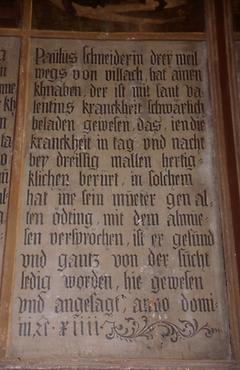 Paulus schneiderin dreÿ meil
wegs von villach, hat ainen
khnaben, der ist mit sant va
lentins kranckheit schwärlich
beladen gewesen, das, ien die
kranckheit in tag vnd nacht
beÿ dreissig mallen hertig-
klichen berürt, in solchem
hat ine sein müeter gen al
ten ödting, mit dem almue-
sen versprochen, ist er gesünd
vnd gantz von der sücht
ledig worden, hie gewesen
vnd angesagt, anno domi-
ni